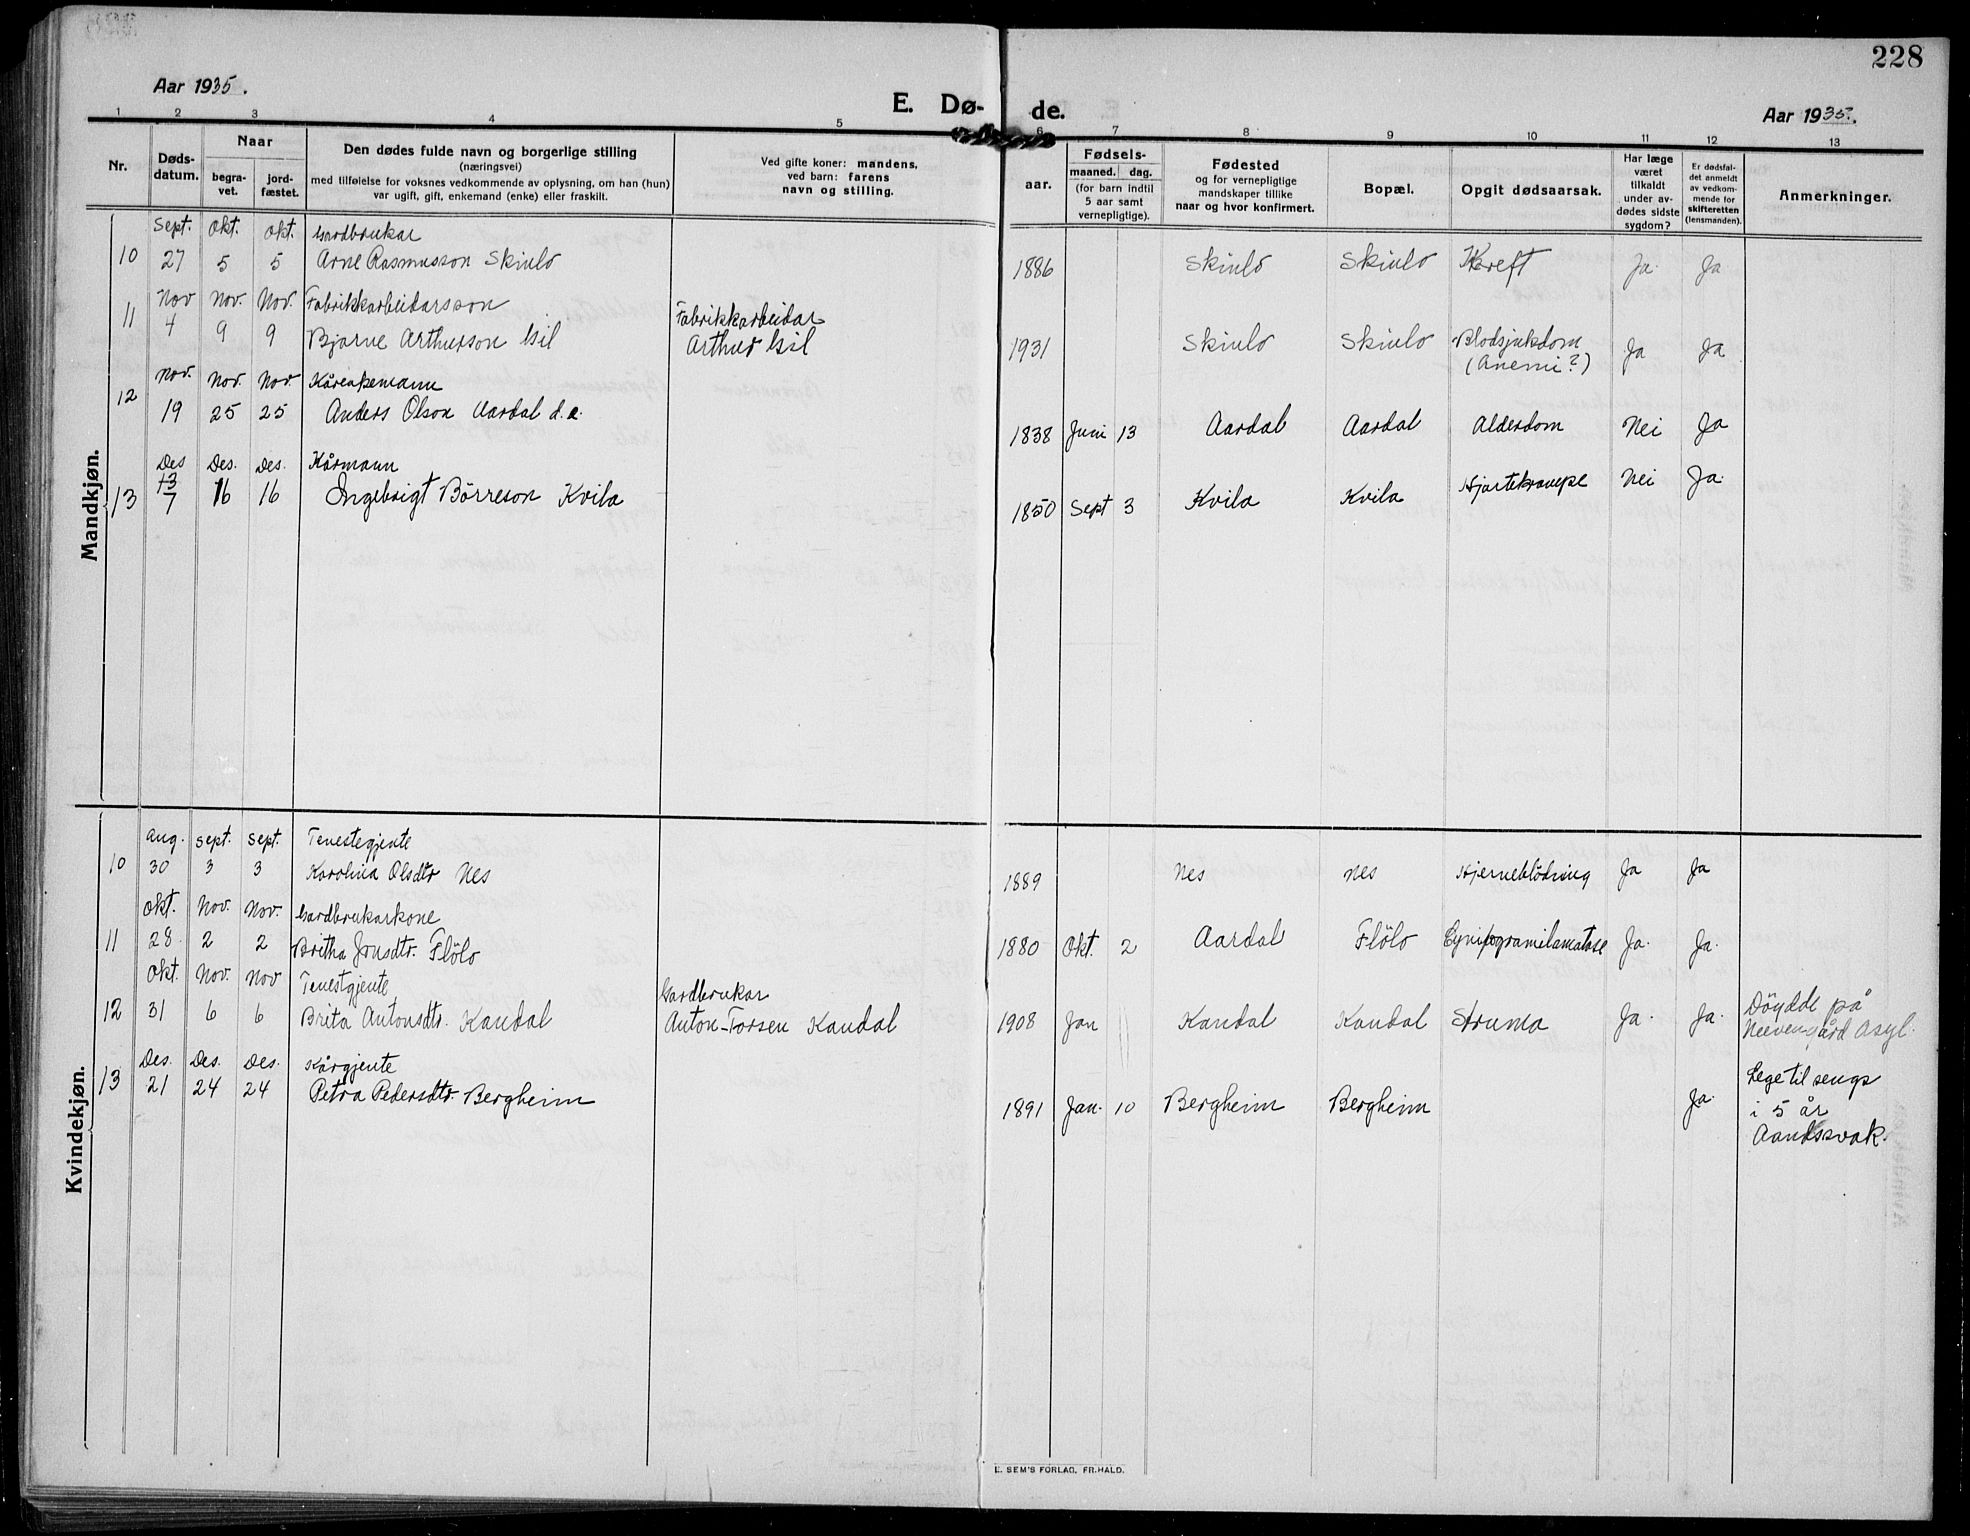 228
Aar 1935.
E. Dø- de.
Aar 1935.
1 2 3 4 5 6 7 8 9 10 11 12 13
Nr.
Døds-
datum.
Naar
begra-
vet.
jord-
fæstet.
Den dødes fulde navn og borgerlige stilling
(næringsvei)
med tilføielse for voksnes vedkommende av oplysning, om han (hun)
var ugift, gift, enkemand (enke) eller fraskilt.
Ved gifte koner: mandens,
ved barn: farens
navn og stilling.
aar.
Fødsels-
maaned. dag.
(for barn indtil
5 aar samt
vernepligtige).
Fødested
og for vernepligtige
mandskaper tillike
naar og hvor konfirmert.
Bopæl.
Opgit dødsaarsak.
Har læge
været
tilkaldt
under av-
dødes sidste
sygdom?
Er dødsfal-
det anmeldt
av vedkom-
mende for
skifteretten
(lensmanden).
Anmerkninger.
Mandkjøn.
Sept. Okt. Okt. Gardbrukar
10 27 5 5 Arne Rasmusson Skinlo 1886 Skinlo Skinlo Kreft Ja. Ja
Nov Nov. Nov. Fabrikkarbeidarsson Fabrikkarbeidar
11 4 9 9 Bjarne Arthurson Gil Arthur Gil 1931 Skinlo Skinlo Blodsjukdom Ja Ja
(Anemi?)
Nov. Nov. Nov. Kårenkemann
12 19 25 25 Anders Olson Aardal d.e. 1838 Juni 13 Aardal Aardal Alderdom Nei Ja
Des Des. Des. Kårmann
13 13/7 16 16 Ingebrigt Börreson Kvila 1850 Sept 3 Kvila Kvila Hjartekrampe Nei Ja.
Kvindekjøn.
Aug. Sept. Sept. Tenestegjente
10 30 3 3 Karolina Olsdtr Nes 1889 Nes Nes Hjerneblödning Ja Ja
Okt. Nov. Nov. Gardbrukarkone
11 28. 2 2 Britha Jonsdtr. Flölo 1880 Okt. 2 Aardal Flölo Ja. Ja.
Okt. Nov. Nov Tenestgjente Gardbrukar
12 31 6 6 Brita Antonsdtr. Kandal Anton Torsen Kandal 1908 Jan Kandal Kandal Struma Ja. Ja. Döydde på
Neevengård Asyl.
Des. Des. Des. Kårgjente
13 21 24 24 Petra Pedersdtr. Bergheim 1891 Jan. 10 Bergheim Bergheim Ja. Lege til sengs
i 5 år
Aandssvak.
E. SEM'S FORLAG, FR.HALD.